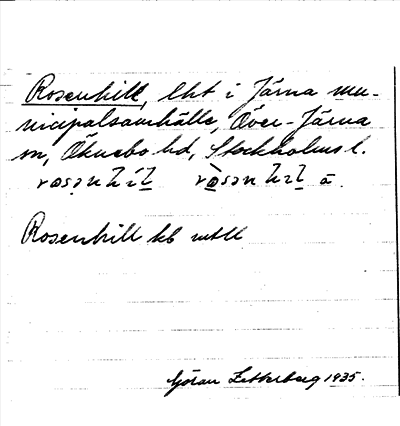 Rosenhill, lht i Järna mu-
nicipalsamhälle, Över-Järna
sn, Öknebo hd, Stockholms l.
Rosenhill kb mtll
Göran Zetterberg 1935.